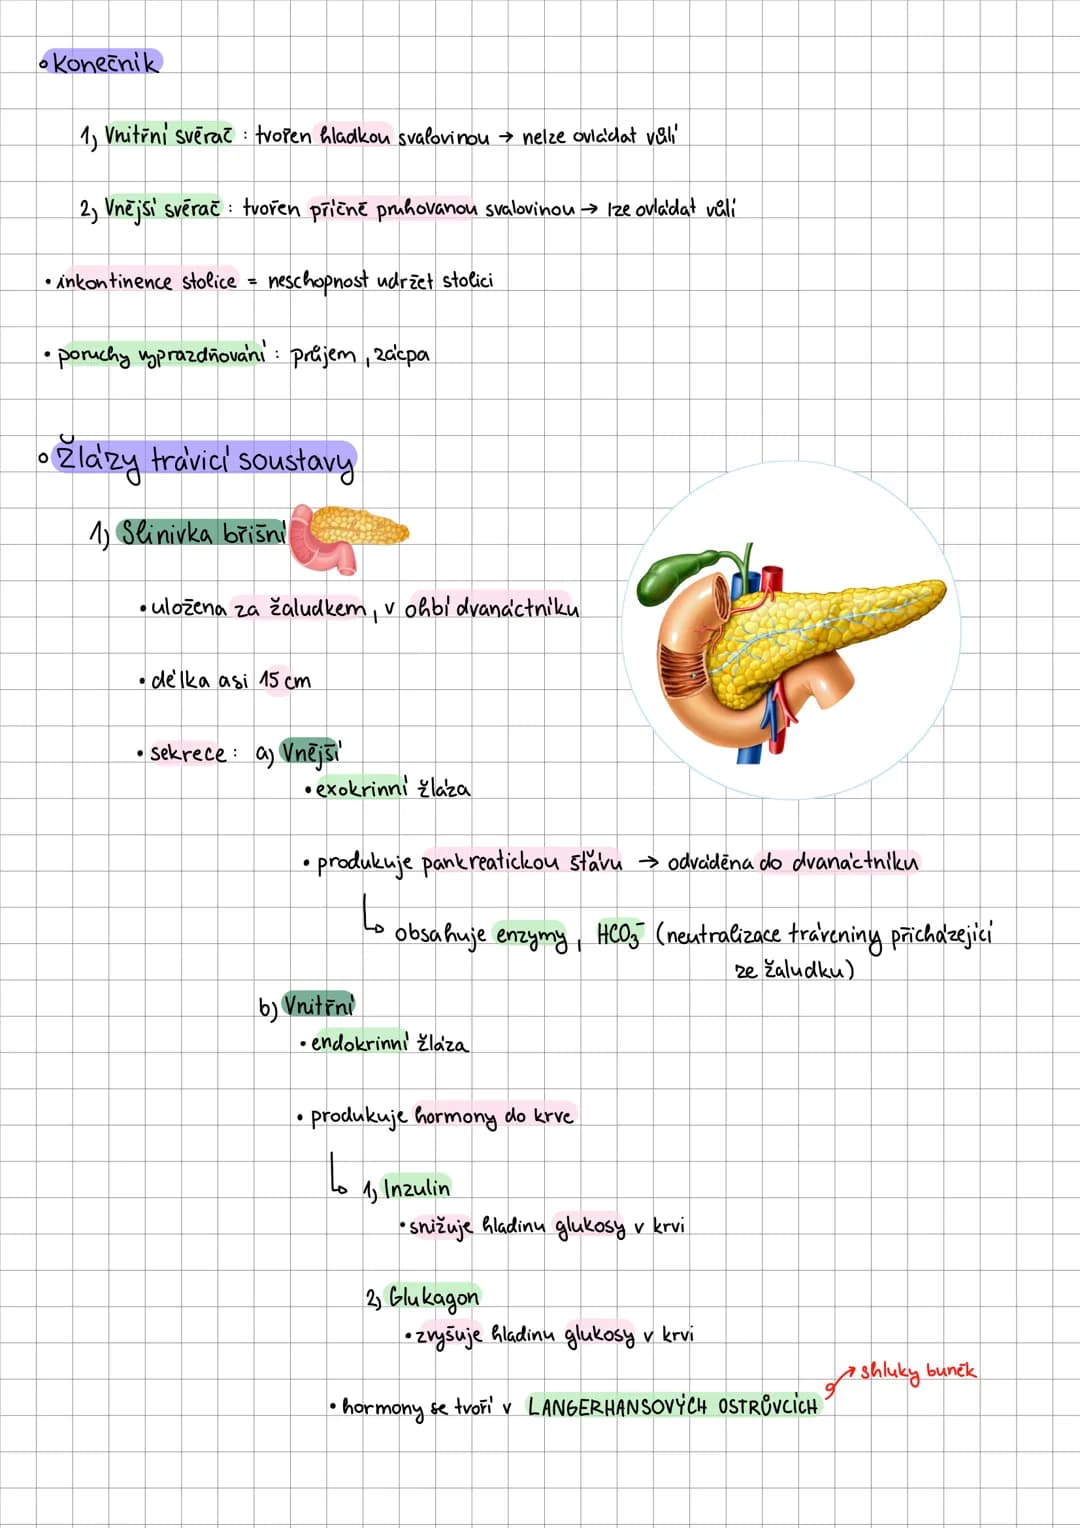 • Konečník
1) Vnitřní svěrač : tvořen hladkou svalovinou → nelze ovládat vůlí
2) Vnější svěrač : tvořen příčně pruhovanou svalovinou → lze ovládat vůlí
• inkontinence stolice = neschopnost udržet stolici
• poruchy vyprazdňování : průjem, zácpa
• Žlázy trávicí soustavy
1) Slinivka břišní
• uložena za žaludkem, v ohbí dvanáctníku
• délka asi 15 cm
• sekrece : a) Vnější
• exokrinní žláza
• produkuje pankreatickou šťávu → odváděna do dvanáctníku
↳ obsahuje enzymy, HCO₃⁻ (neutralizace tráveniny přicházející
ze žaludku)
b) Vnitřní
• endokrinní žláza
• produkuje hormony do krve
↳ 1) Inzulin
• snižuje hladinu glukosy v krvi
2) Glukagon
• zvyšuje hladinu glukosy v krvi
→ shluky buněk
• hormony se tvoří v LANGERHANSOVÝCH OSTRŮVCÍCH